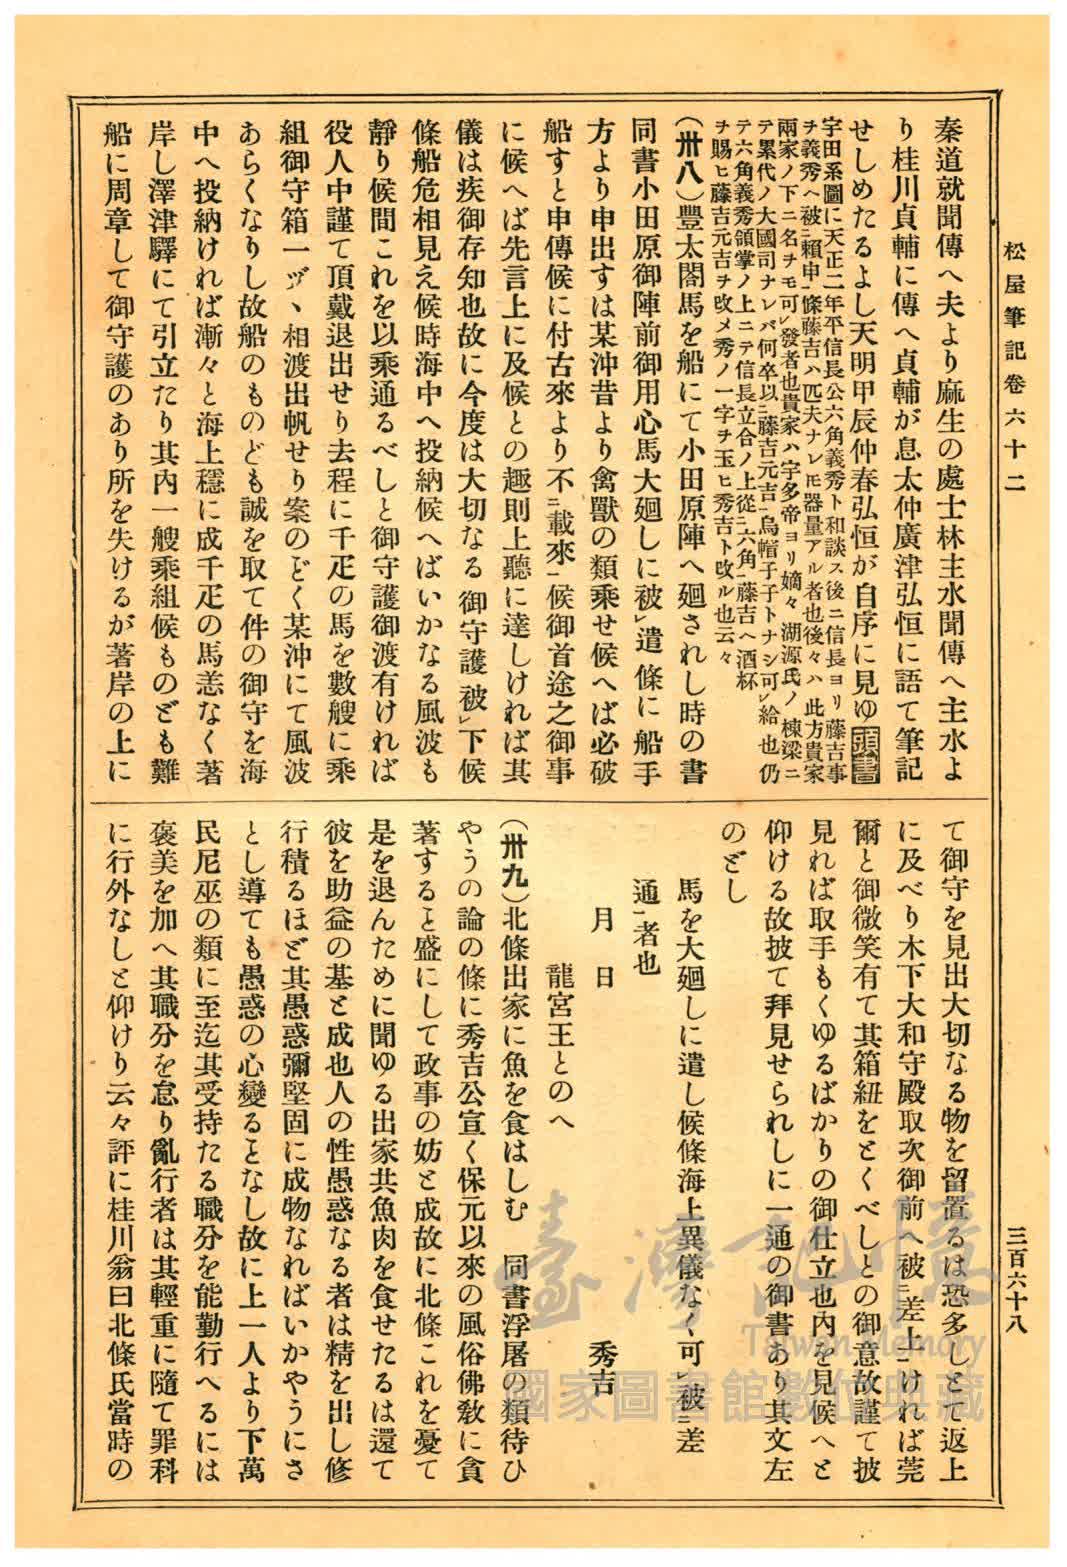 松屋筆記卷六十二
三百六十八
秦道就聞傳へ夫より麻生の處士林主水聞傳へ主水よ
り桂川貞輔に傳へ貞輔が息太仲廣津弘恒に語て筆記
せしめたるよし天明甲辰仲春弘恒が自序に見ゆ頭書
宇田系圖に天正二年平信長公六角義秀ト和談ス後ニ信長ヨリ藤吉事
チ義秀ヘ被ニ賴申一條藤吉ハ匹夫ナレ𪜈器量アル者也後々ハ此方貴家
兩家ノ下ニ名チモ可レ發者也貴家ハ宇多帝ヨリ嫡々湖源氏ノ棟梁ニ
テ累代ノ大國司ナレバ何卒以ニ藤吉元吉一烏帽子子トナシ可レ給也仍
テ六角義秀領掌ノ上ニテ信長立合ノ上從ニ六角一藤吉ヘ酒杯
チ賜ヒ藤吉元吉チ改メ秀ノ一字チ玉ヒ秀吉ト改ル也云々
(卅八)豐太閤馬を船にて小田原陣へ廻されし時の書
同書小田原御陣前御用心馬大廻しに被レ遣條に船手
方より申出すは某沖昔より禽獸の類乘せ候へば必破
船すと申傳候に付古來より不ニ載來一候御首途之御事
に候へば先言上に及候との趣則上聽に達しければ其
儀は疾御存知也故に今度は大切なる御守護被レ下候
條船危相見え候時海中へ投納候へばいかなる風波も
靜り候間これを以乘通るべしと御守護御渡有ければ
役人中謹て頂戴退出せり去程に千疋の馬を數艘に乘
組御守箱一ヅヽ相渡出帆せり案のごく某沖にて風波
あらくなりし故船のものども誠を取て件の御守を海
中へ投納ければ漸々と海上穩に成千疋の馬恙なく著
岸し澤津驛にて引立たり其內一艘乘組候ものども難
船に周章して御守護のあり所を失けるが著岸の上に
て御守を見出大切なる物を留置るは恐多しとて返上
に及べり木下大和守殿取次御前へ被ニ差上一ければ莞
爾と御微笑有て其箱紐をとくべしとの御意故謹て披
見れば取手もくゆるばかりの御仕立也內を見候へと
仰ける故披て拜見せられしに一通の御書あり其文左
のごし
馬を大廻しに遣し候條海上異儀なく可レ被ニ差
通一者也
月 日 秀吉
龍宮王とのへ
(卅九)北條出家に魚を食はしむ 同書浮屠の類待ひ
やうの論の條に秀吉公宣く保元以來の風俗佛敎に貪
著するこ盛にして政事の妨と成故に北條これを憂て
是を退んために聞ゆる出家共魚肉を食せたるは還て
彼を助益の基と成也人の性愚惑なる者は精を出し修
行積るほど其愚惑彌堅固に成物なればいかやうにさ
とし導ても愚惑の心變るこなし故に上一人より下萬
民尼巫の類に至迄其受持たる職分を能勤行へるには
褒美を加へ其職分を怠り亂行者は其輕重に隨て罪科
に行外なしと仰けり云々評に桂川翁曰北條氏當時の
臺灣記憶
Taiwan Memory
國家圖書館數位典藏